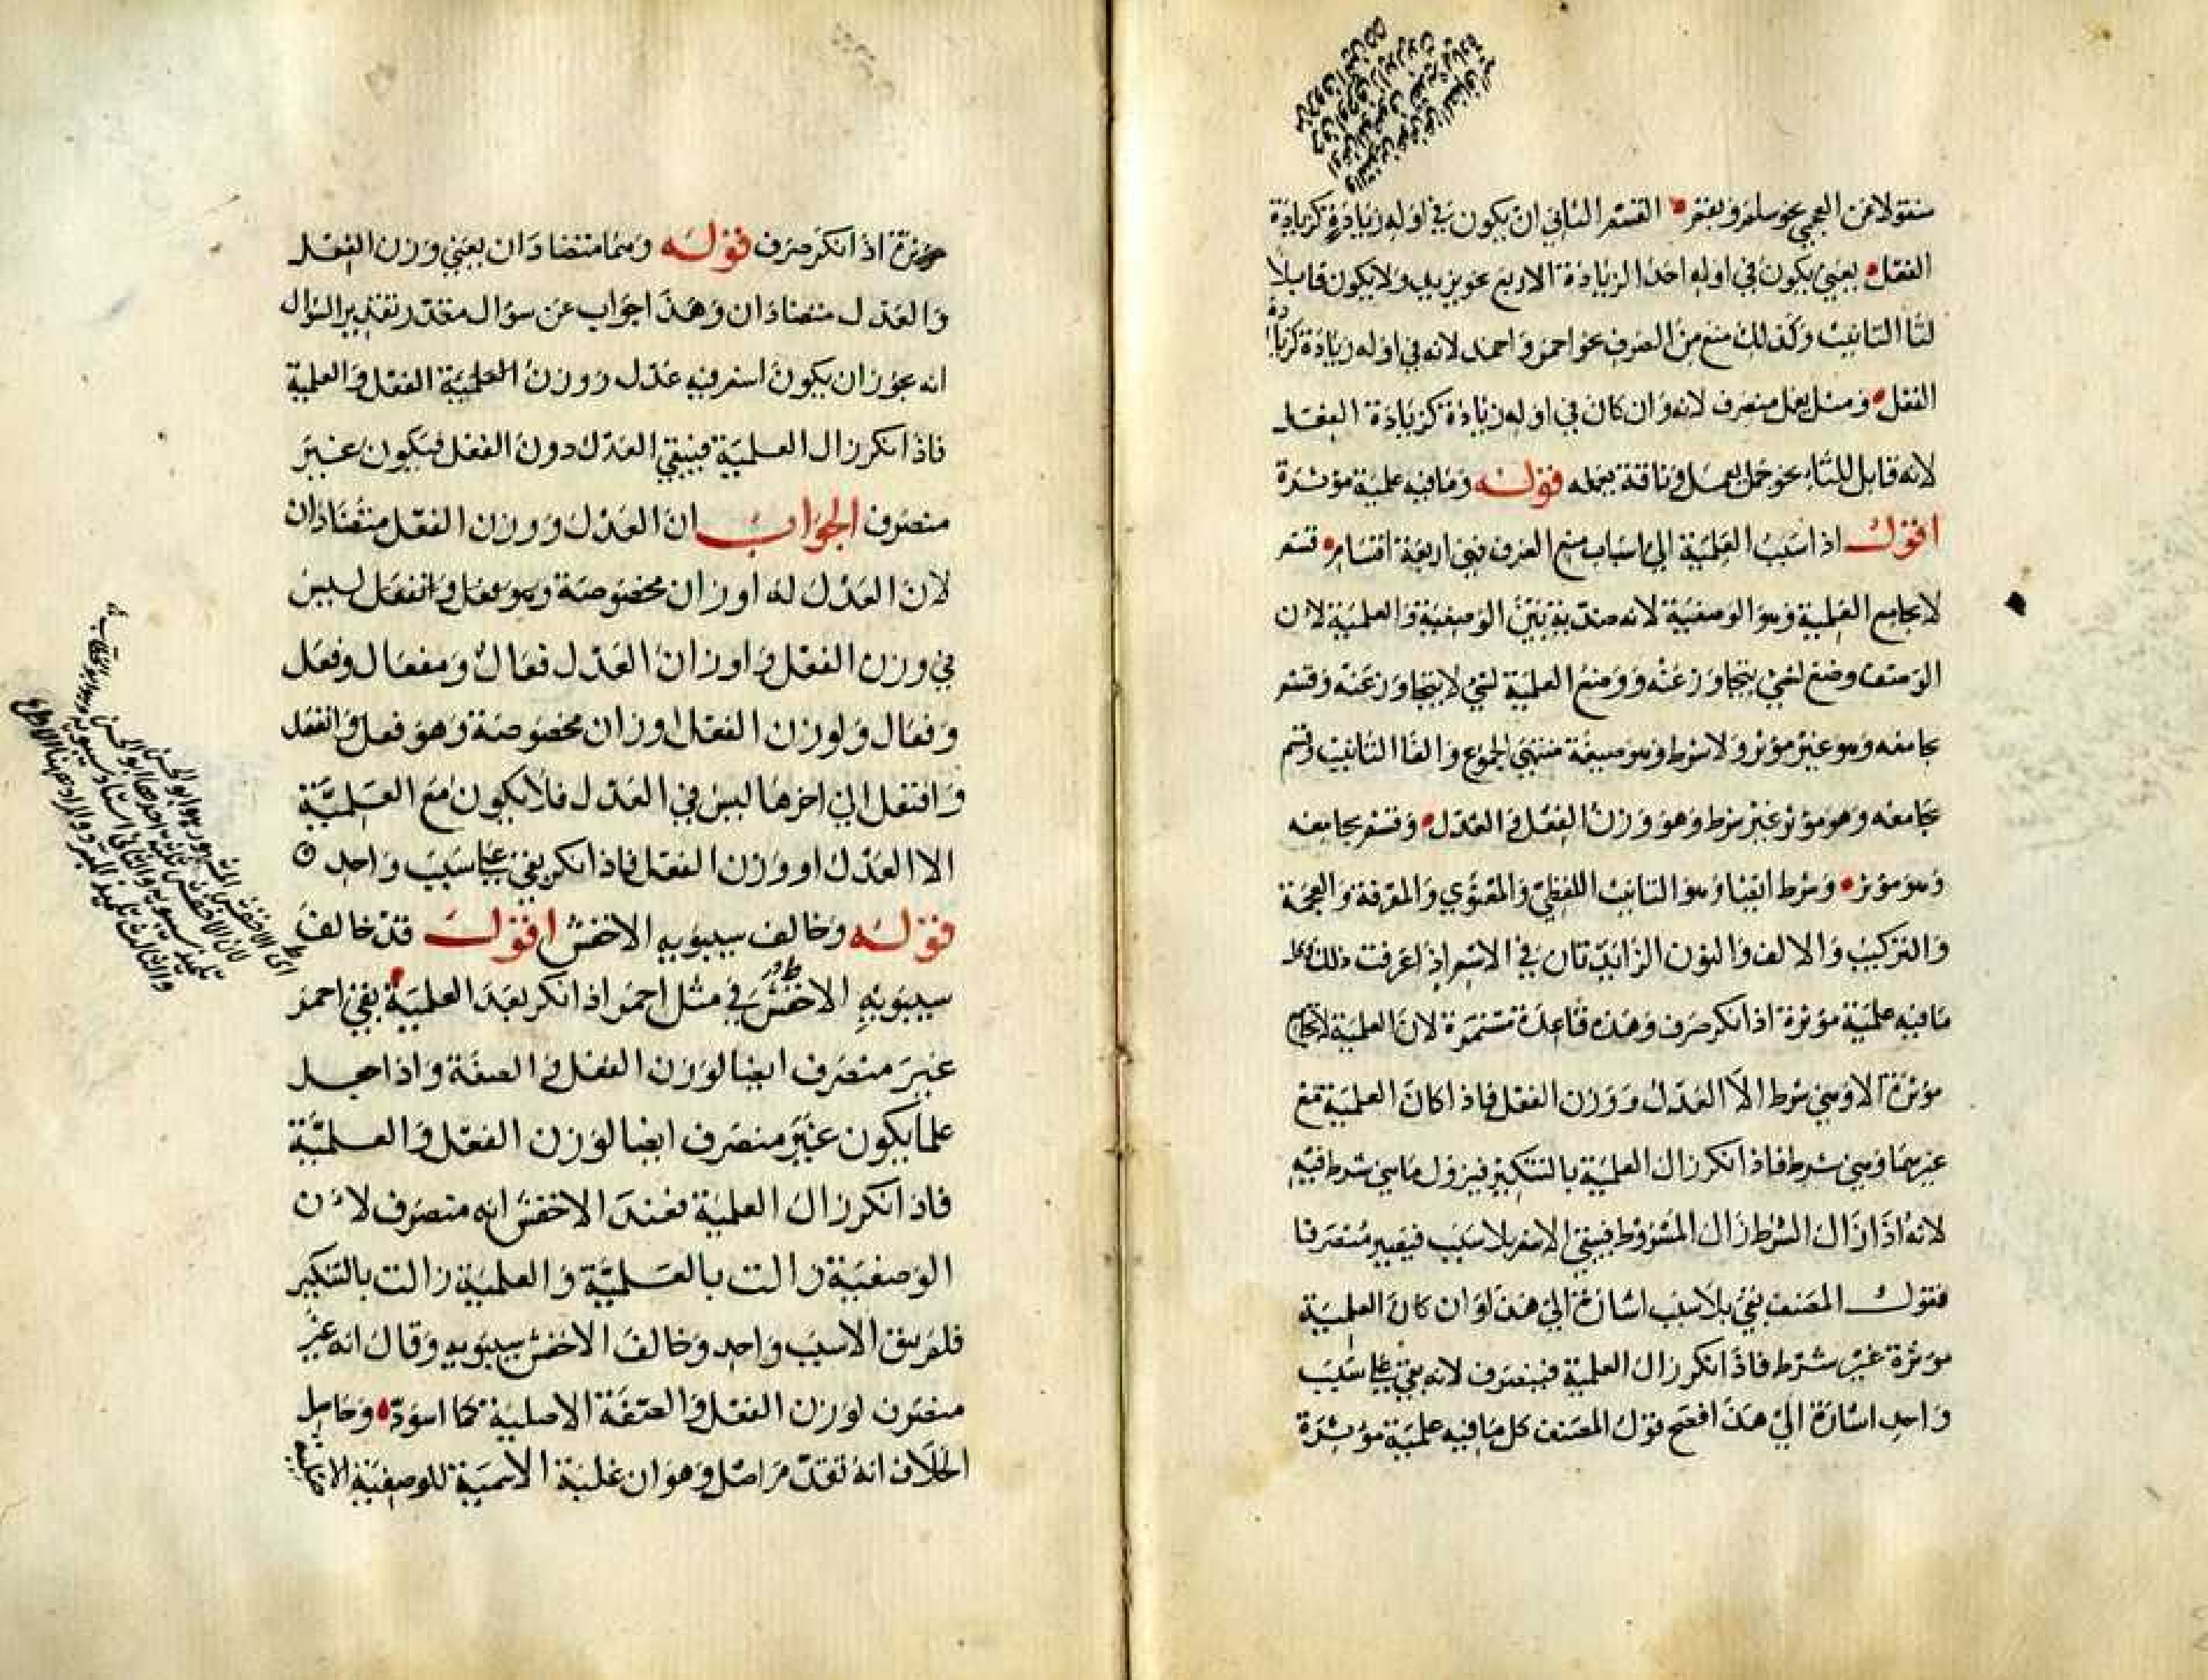 منقولا عن العجمي نحو سلم وبقم القسم الثاني ان يكون في اوله زيادة كزيادة
الفعل يعني يكون في اوله احد الزيادة الاربع نحو يزيد ولا يكون قابلا
لتا التانيث وكذلك منع من الصرف نحو احمر واحمد لانه في اوله زيادة كزيادة
الفعل ومثل يعمل منصرف لانه وان كان في اوله زيادة كزيادة الفعل
لانه قابل للتاء نحو جمل يعمل وناقة يعمله قوله وما فيه علمية مؤثرة
اقول اذا اسبب العلمية الى اسباب منع الصرف فهي اربعة اقسام قسم
لا يجامع العلمية وهو الوصفية لانه ضدية بين الوصفية والعلمية لان
الوصف وضع لشي يتجاوز عنه ووضع العلمية لشي لا يتجاوز عنه وقسم
يجامعه وهو غير مؤثر ولا شرط وهو صيغة منتهى الجموع والفا التانيث وقسم
يجامعه وهو مؤثر غير شرط وهو وزن الفعل والعدل وقسم يجامعه
وهو مؤثر وشرط ايضا وهو التانيث اللفظي والمعنوي والمعرفة والعجمة
والتركيب والالف والنون الزائدتان في الاسم اذا عرفت ذلك
ما فيه علمية مؤثرة اذا نكر صرف وهذه قاعدة مستمرة لان العلمية لا تجامع
مؤثرة الا وهي شرط الا العدل ووزن الفعل فاذا كان العلمية مع
غيرهما وهي شرط فاذا نكر زال العلمية بالتنكير فيزول ما هي شرط فيه
لانه اذا زال الشرط زال المشروط فيبقى الاسم بلا سبب فيصير منصرفا
فقول المصنف بقي بلا سبب اشارة الى هذا وان كان العلمية
مؤثرة غير شرط فاذا نكر زال العلمية فينصرف لانه بقي على سبب
واحد اشارة الى هذا افصح قول المصنف كل ما فيه علمية مؤثرة
مؤثرة اذا نكر صرف قوله وهما متضادان يعني وزن الفعل
والعدل متضادان وهذا جواب عن سؤال مقدر تقدير السؤال
انه يجوز ان يكون اسم فيه عدل ووزن العلمية الفعل والعلمية
فاذا نكر زال العلمية فيبقى العدل دون الفعل فيكون غير
منصرف الجواب ان العدل ووزن الفعل متضادان
لان العدل له اوزان مخصوصة وهو فعل وانفعل ليس
في وزن الفعل واوزان العدل فعال ومفعال وفعل
وفعال ولوزن الفعل اوزان مخصوصة وهو فعل وانفعل
وافتعل الى اخرها ليس في العدل فلا يكون مع العلمية
الا العدل او وزن الفعل فاذا نكر بقي على سبب واحد
قوله وخالف سيبويه الاخفش اقول قد خالف
سيبويه الاخفش في مثل احمر اذا نكر بعد العلمية بقي احمر
غير منصرف ايضا لوزن الفعل والصفة واذا جعل
علما يكون غير منصرف ايضا لوزن الفعل والعلمية
فاذا نكر زال العلمية فعند الاخفش انه منصرف لان
الوصفية زالت بالعلمية والعلمية زالت بالتنكير
فلم يبق الا سبب واحد وخالف الاخفش سيبويه وقال انه غير
منصرف لوزن الفعل والصفة الاصلية كما اسود وحاصل
الخلاف انه تقدم اصل وهو ان غلبة الاسمية للوصفية